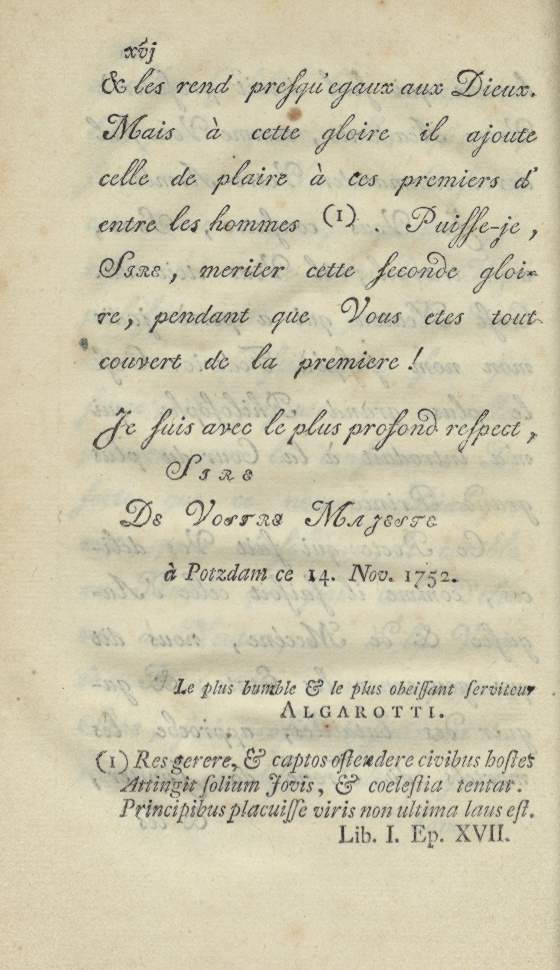 xvj
& les rend presqu'egaux aux Dieux.
Mais à cette gloire il ajoute
celle de plaire à ces premiers d'
entre les hommes (1). Puisse-je,
SIRE, meriter cette seconde gloi-
re, pendant que Vous etes tout
couvert de la premiere!
Je suis avec le plus profond respect,
SIRE
DE VOSTRE MAJESTE
à Potzdam ce 14. Nov. 1752.
Le plus humble & le plus obeissant serviteur
ALGAROTTI.
(1) Res gerere, & captos ostendere civibus hostes
Attingit solium Jovis, & coelestia tentat.
Principibus placuisse viris non ultima laus est.
Lib. I. Ep. XVII.